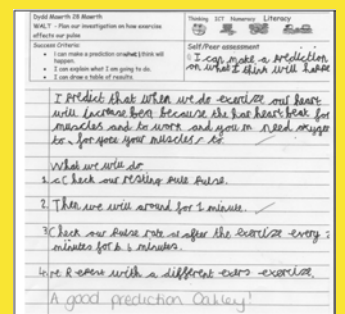 Dydd Mawrth 28 Mawrth
WALT - Plan our investigation on how exercise
effects our pulse
Success Criteria:
• I can make a prediction on what I think will
happen.
• I can explain what I am going to do.
• I can draw a table of results.
Thinking ICT Numeracy Literacy
Self/Peer assessment
I can make a prediction
on what I think will happe
I predict that when we do exercize our heart
will increase because the heart beat for
muscles and to work and you need
to for your muscles to.
What we will do
1. Check our resting pulse.
2. Then we will around for 1 minute.
3. Check our pulse rate after the exercize every 2
minutes for 6 minutes.
4. Repeat with a different exercize.
A good prediction Oakley!